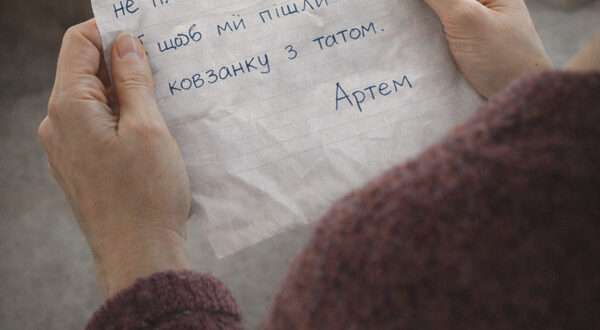 не
щоб ми пішли
ковзанку з татом.
Артем